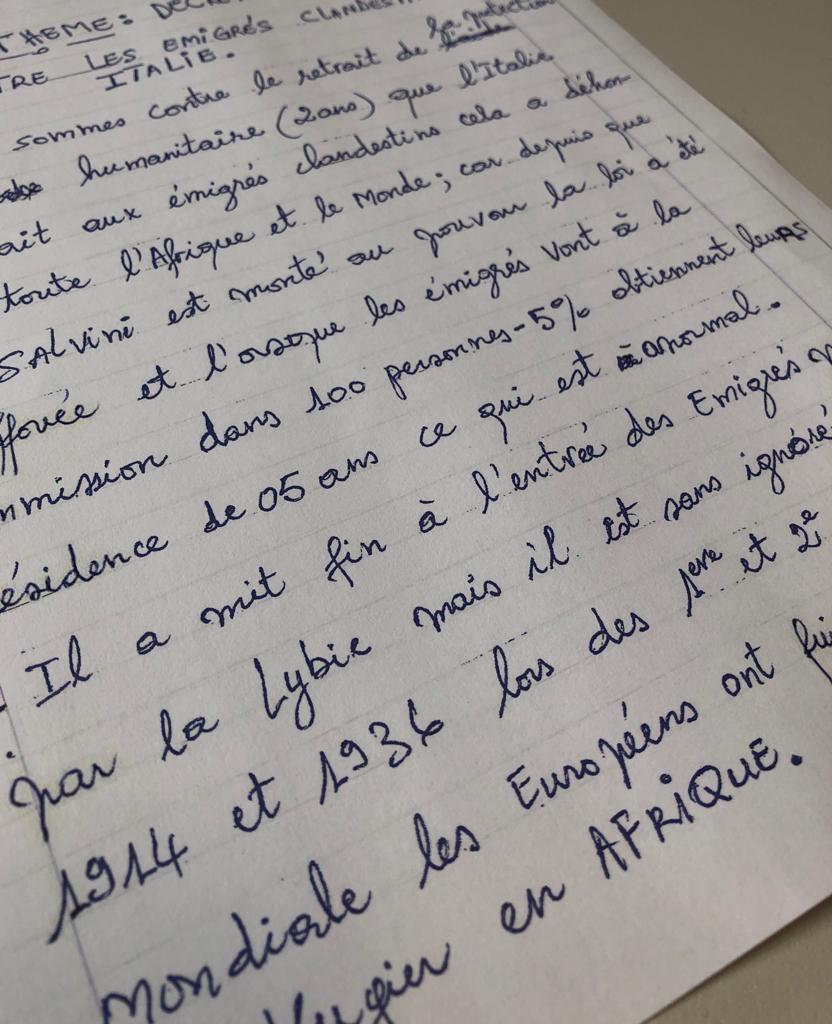 THEME: DECR
TRE LES EMIGRÉS CLANDEST
ITALIE.
sommes contre le retrait de la
humanitaire (2ans) que l'Italie
ait aux émigrés clandestins cela a déhon
toute l'Afrique et le Monde; car depuis que
SALVINI est monté au pouvoir la loi a été
ffouée et l'orsque les émigrés vont à la
mmission dans 100 personnes-5% obtiennent leurs
ésidence de 05 ans ce qui est anormal.
Il a mit fin à l'entrée des Emigrés
par la Lybie mais il est sans ignoré
1914 et 1936 lors des 1ere et 2e
Mondiale les Européens ont fui
fugier en AFRIQUE.